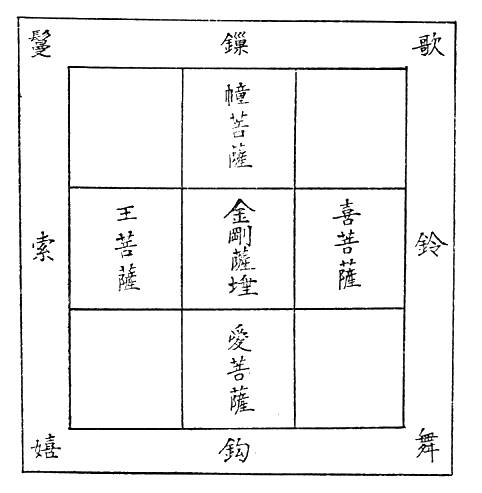 鬘 鏁 歌
幢菩薩
索 王菩薩 金剛薩埵 喜菩薩 鈴
愛菩薩
嬉 鈎 舞